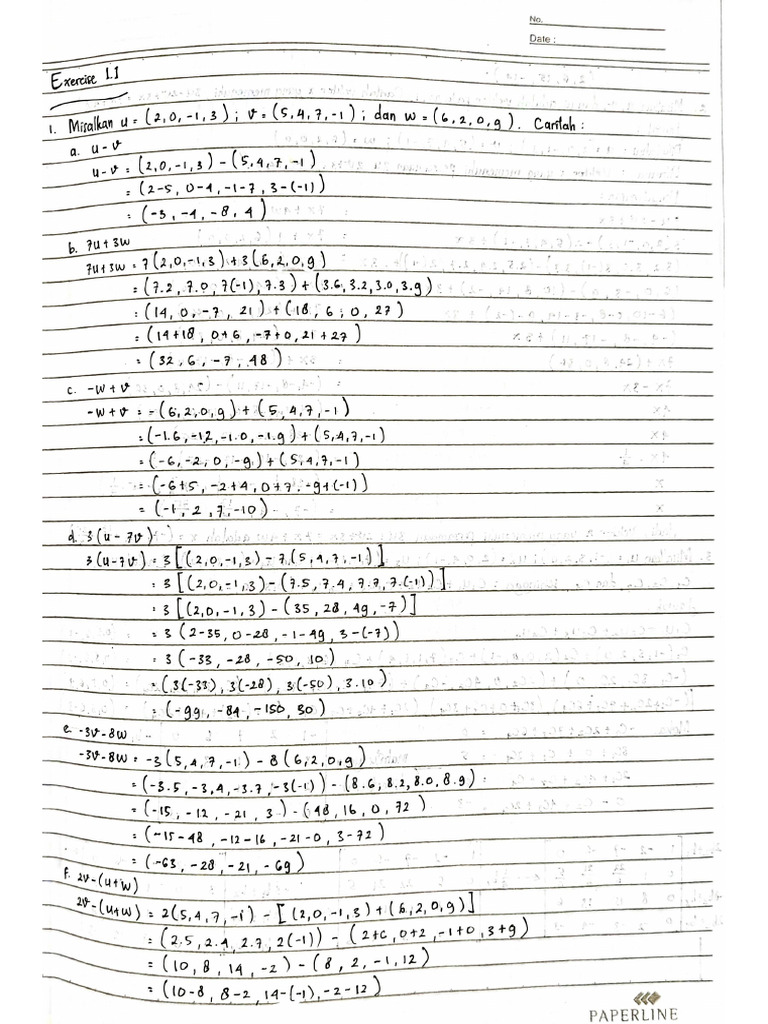 No.
Date :
Exercise 1.1
1. Misalkan u = (2,0,-1,3) ; v = (5,4,7,-1) ; dan w = (6,2,0,9). Carilah :
a. u-v
u-v = (2,0,-1,3) - (5,4,7,-1)
= (2-5, 0-4, -1-7, 3-(-1))
= (-3, -4, -8, 4)
b. 7u+3w
7u+3w = 7(2,0,-1,3) + 3(6,2,0,9)
= (7.2, 7.0, 7(-1), 7.3) + (3.6, 3.2, 3.0, 3.9)
= (14, 0, -7, 21) + (18, 6, 0, 27)
= (14+18, 0+6, -7+0, 21+27)
= (32, 6, -7, 48)
c. -w+v
-w+v = -(6,2,0,9) + (5,4,7,-1)
= (-1.6, -1.2, -1.0, -1.9) + (5,4,7,-1)
= (-6, -2, 0, -9) + (5,4,7,-1)
= (-6+5, -2+4, 0+7, -9+(-1))
= (-1, 2, 7, -10)
d. 3(u-7v)
3(u-7v) = 3[(2,0,-1,3) - 7(5,4,7,-1)]
= 3[(2,0,-1,3) - (7.5, 7.4, 7.7, 7.(-1))]
= 3[(2,0,-1,3) - (35, 28, 49, -7)]
= 3(2-35, 0-28, -1-49, 3-(-7))
= 3(-33, -28, -50, 10)
= (3(-33), 3(-28), 3(-50), 3.10)
= (-99, -84, -150, 30)
e. -3v-8w
-3v-8w = -3(5,4,7,-1) - 8(6,2,0,9)
= (-3.5, -3.4, -3.7, -3(-1)) - (8.6, 8.2, 8.0, 8.9)
= (-15, -12, -21, 3) - (48, 16, 0, 72)
= (-15-48, -12-16, -21-0, 3-72)
= (-63, -28, -21, -69)
f. 2v-(u+w)
2v-(u+w) = 2(5,4,7,-1) - [(2,0,-1,3) + (6,2,0,9)]
= (2.5, 2.4, 2.7, 2(-1)) - (2+6, 0+2, -1+0, 3+9)
= (10, 8, 14, -2) - (8, 2, -1, 12)
= (10-8, 8-2, 14-(-1), -2-12)
PAPERLINE